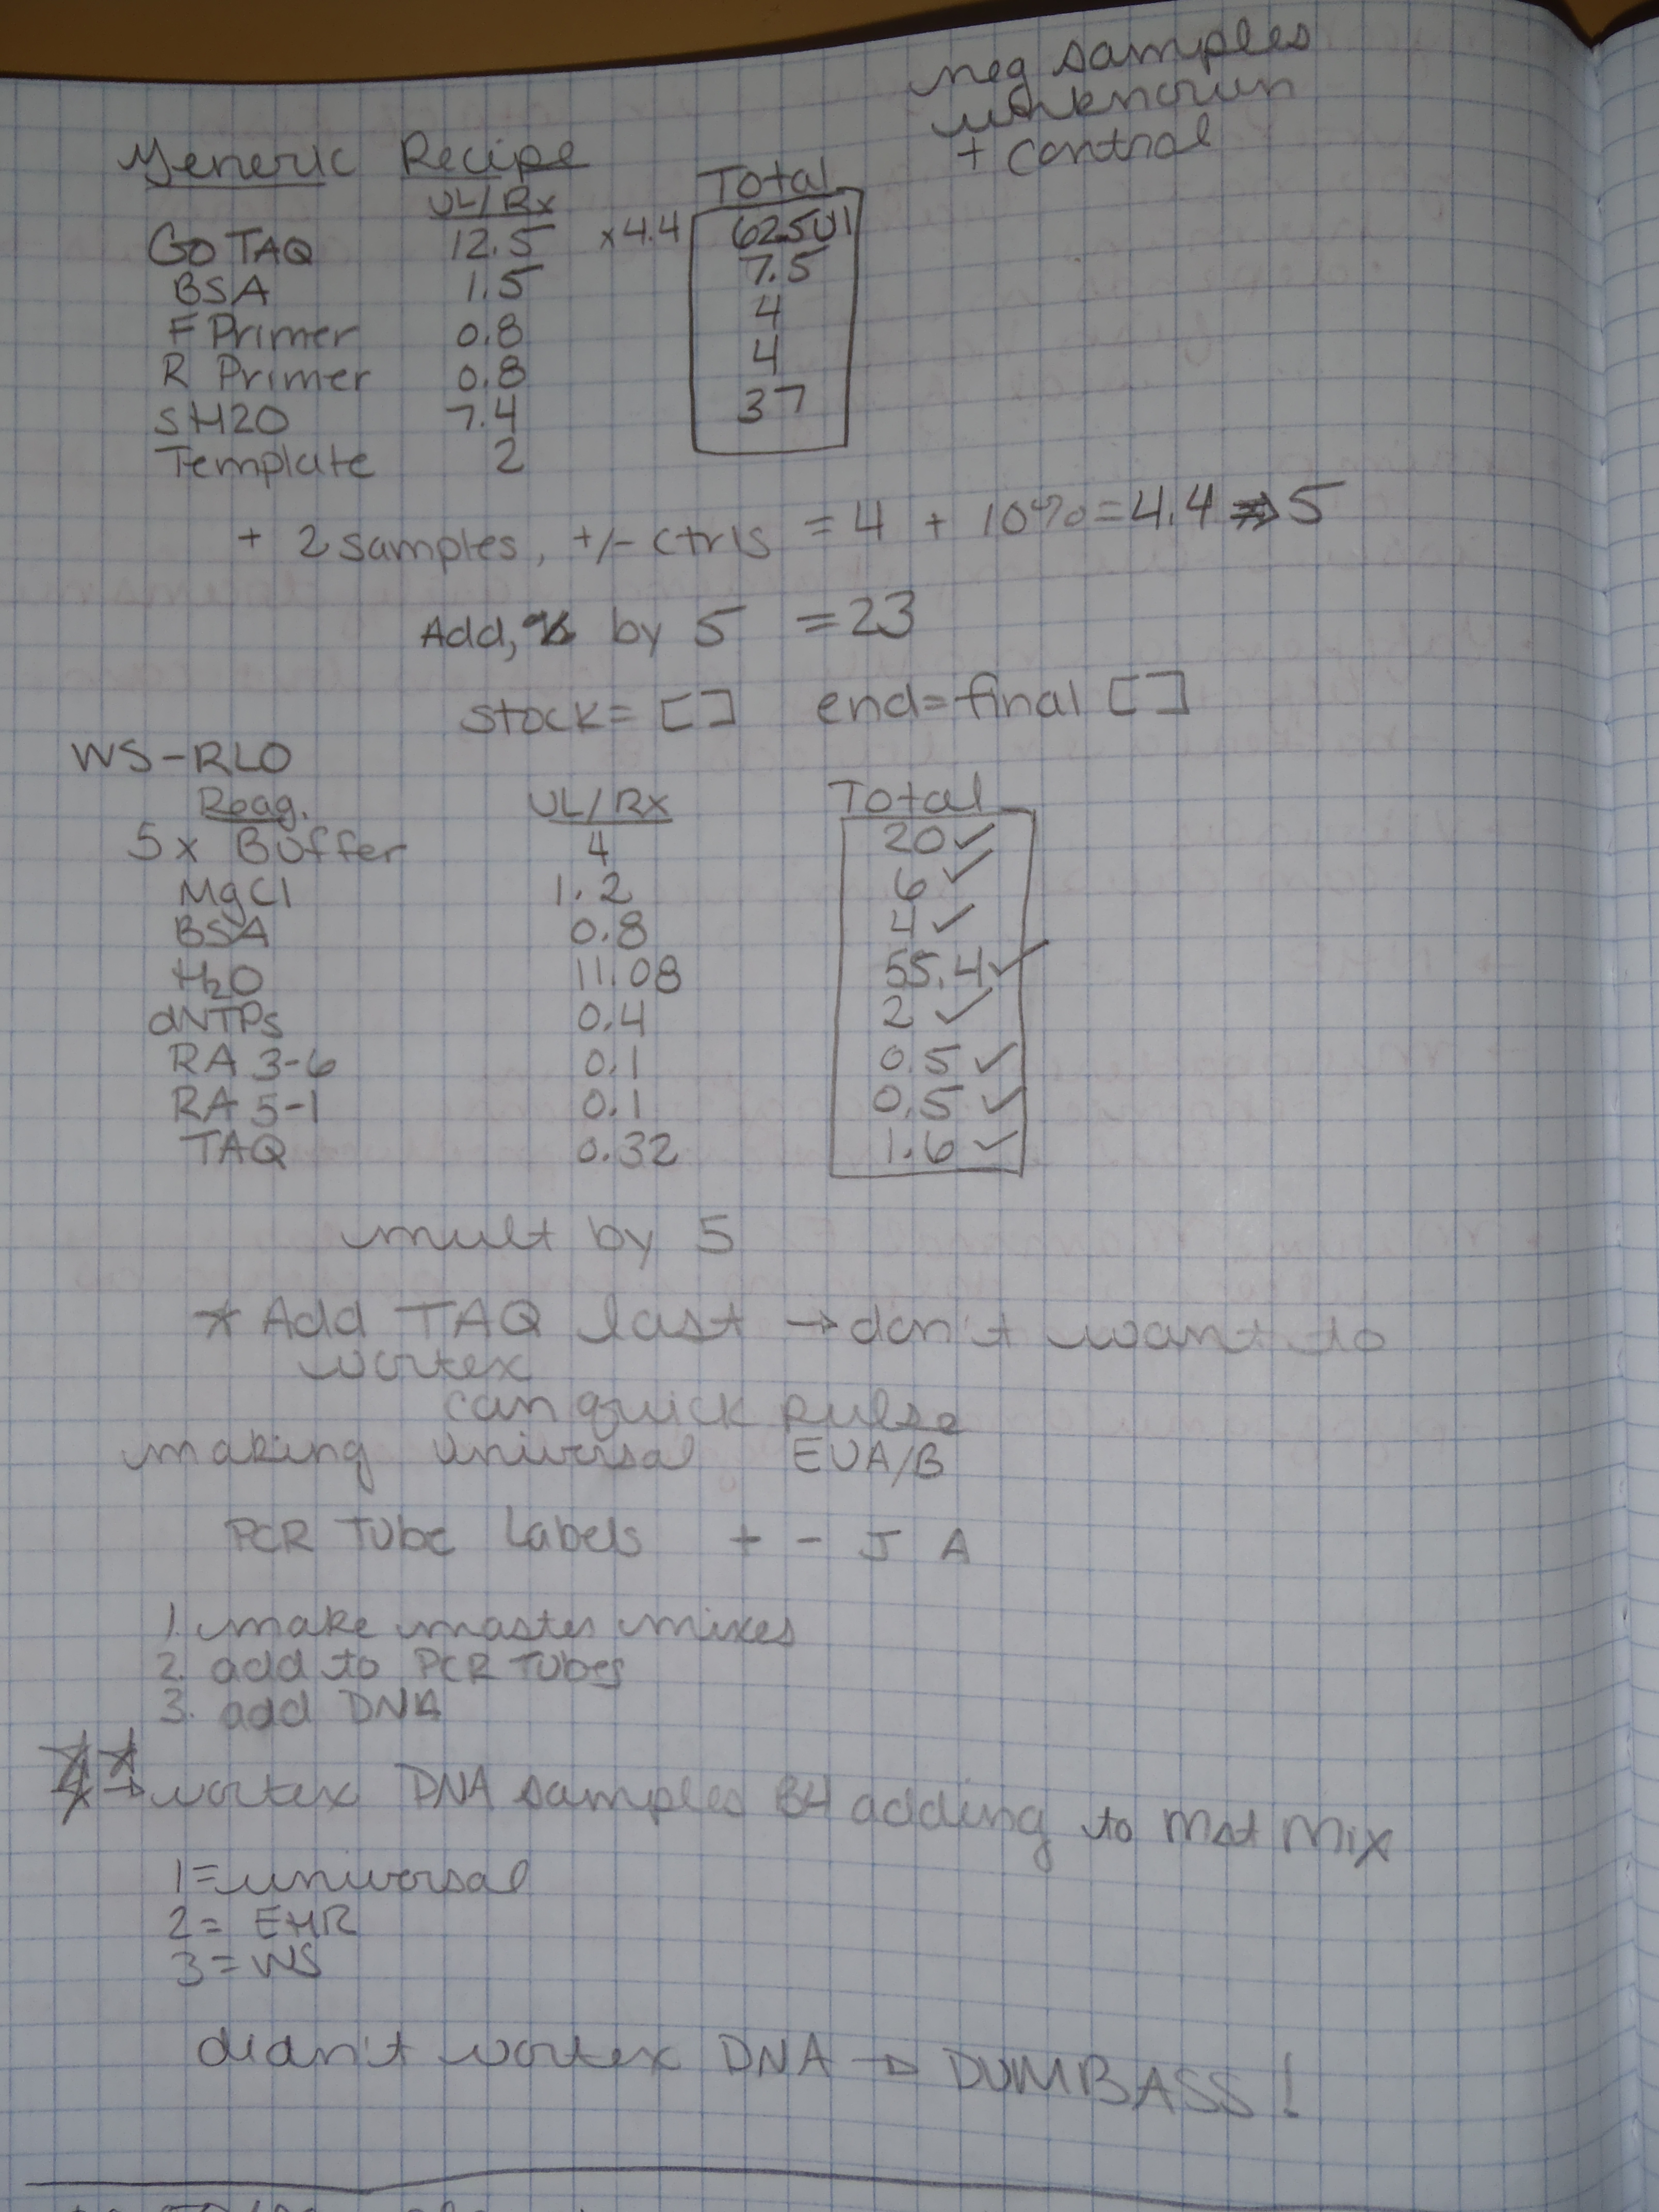 neg samples
unknown
+ control
Generic Recipe
UL/Rx Total
GO TAQ 12.5 x4.4 62.5Ul
BSA 1.5 7.5
F Primer 0.8 4
R Primer 0.8 4
SH2O 7.4 37
Template 2
+ 2 samples, +/- ctrls = 4 + 10% = 4.4 ⇒ 5
Add, by 5 = 23
stock= [] end=final []
WS-RLO
Reag. UL/Rx Total
5x Buffer 4 20 ✓
MgCl 1.2 6 ✓
BSA 0.8 4 ✓
H2O 11.08 55.4 ✓
dNTPs 0.4 2 ✓
RA 3-6 0.1 0.5 ✓
RA 5-1 0.1 0.5 ✓
TAQ 0.32 1.6 ✓
mult by 5
* Add TAQ last → don't want to
vortex
can quick pulse
making universal EUA/B
PCR Tube Labels + - J A
1. make master mixes
2. add to PCR Tubes
3. add DNA
→ vortex DNA samples B4 adding to Mst Mix
1=universal
2= EHR
3=WS
didn't vortex DNA → DUMBASS!